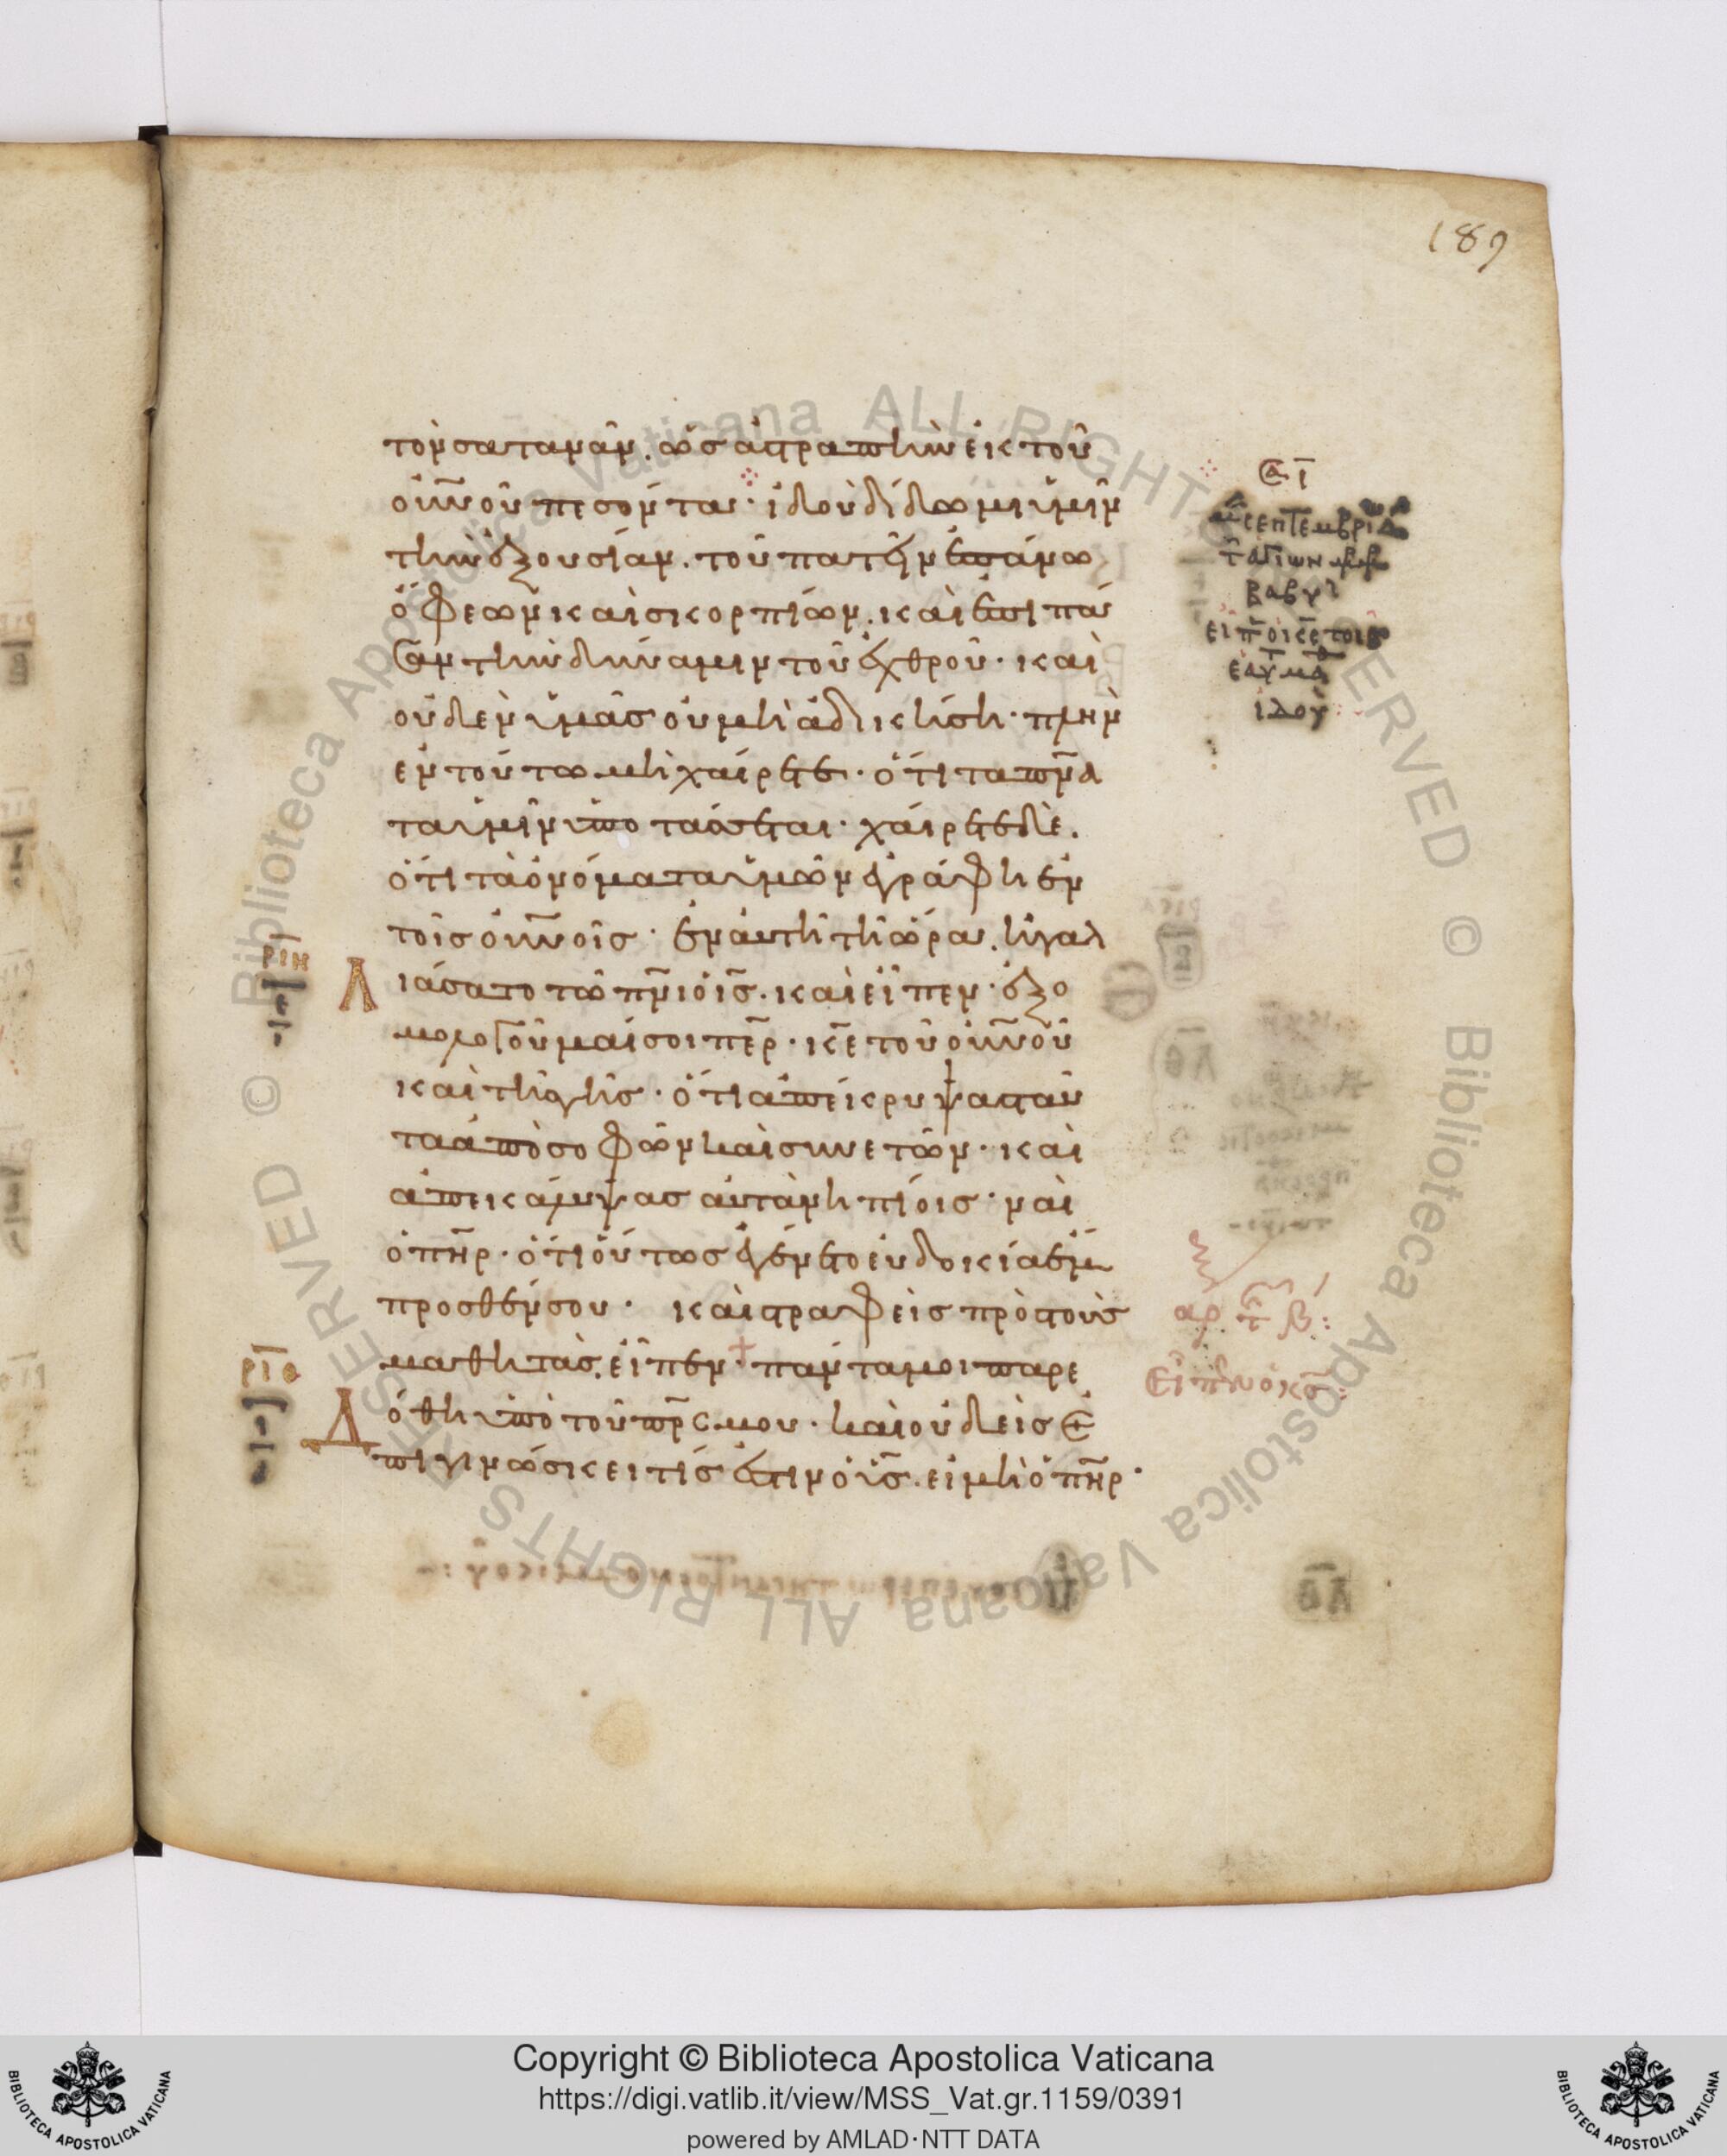 189
τὸν σαταναν. ὡσ ἀστραπὴν ἐκ τοῦ
οὐνοῦ πεσόντα· ἰδοὺ δίδωμι ὑμῖν
τὴν ἐξουσίαν. τοῦ πατεῖν ἐπάνω
ὄφεων καὶ σκορπίων. καὶ ἐπὶ πα
σαν τὴν δύναμιν τοῦ ἐχθροῦ· καὶ
οὐδὲν ὑμᾶσ οὐ μὴ ἀδικήσῃ· πλὴν
ἐν τούτω μὴ χαίρετε· ὅτι τα πν̅α
τα ὑμῖν ὑποτάσσεται· χαίρετε δὲ.
ὅτι τὰ ὀνόματα ὑμῶν ἐγράφη ἐν
τοῖσ οὐνοῖσ· ἐν αὐτῆ τῆ ὥρα. ἠγαλ
λιάσατο τῶ πν̅ι ὁ ἰς̅. καὶ εἶπεν· ἐξο
μολογοῦμαί σοι πε̅ρ· κε̅ τοῦ οὐνοῦ
καὶ τῆς γῆσ· ὅτι ἀπέκρυψασ ταῦ
τα ἀπὸ σοφῶν καὶ συνετῶν· καὶ
ἀπεκάλυψασ αὐτὰ νηπίοισ· ναὶ
ὁ πη̅ρ· ὅτι οὕτωσ ἐγένετο εὐδοκία ἔμ
προσθέν σου· καὶ στραφεὶσ πρὸσ τοὺσ
μαθητὰσ, εἶπεν· πάντα μοι παρε
Δόθη ὑπὸ τοῦ πρ̅ς μου· καὶ οὐδεὶσ ἐ
πιγινώσκει τίσ ἐστιν ὁ υἱς̅. εἰ μὴ ὁ πη̅ρ·
ριη
ριθ
σεπτεμβρι
τ ἁγίων
βαβυλ
ειπ ο κς̅ τοις
εαυ μα
ιδου
αρ τ β:
Εἶπεν ὁ κς̅:
Copyright © Biblioteca Apostolica Vaticana
https://digi.vatlib.it/view/MSS_Vat.gr.1159/0391
powered by AMLAD·NTT DATA
BIBLIOTECA APOSTOLICA VATICANA
BIBLIOTECA APOSTOLICA VATICANA
© Biblioteca Apostolica Vaticana ALL RIGHTS RESERVED © Biblioteca Apostolica Vaticana ALL RIGHTS RESERVED